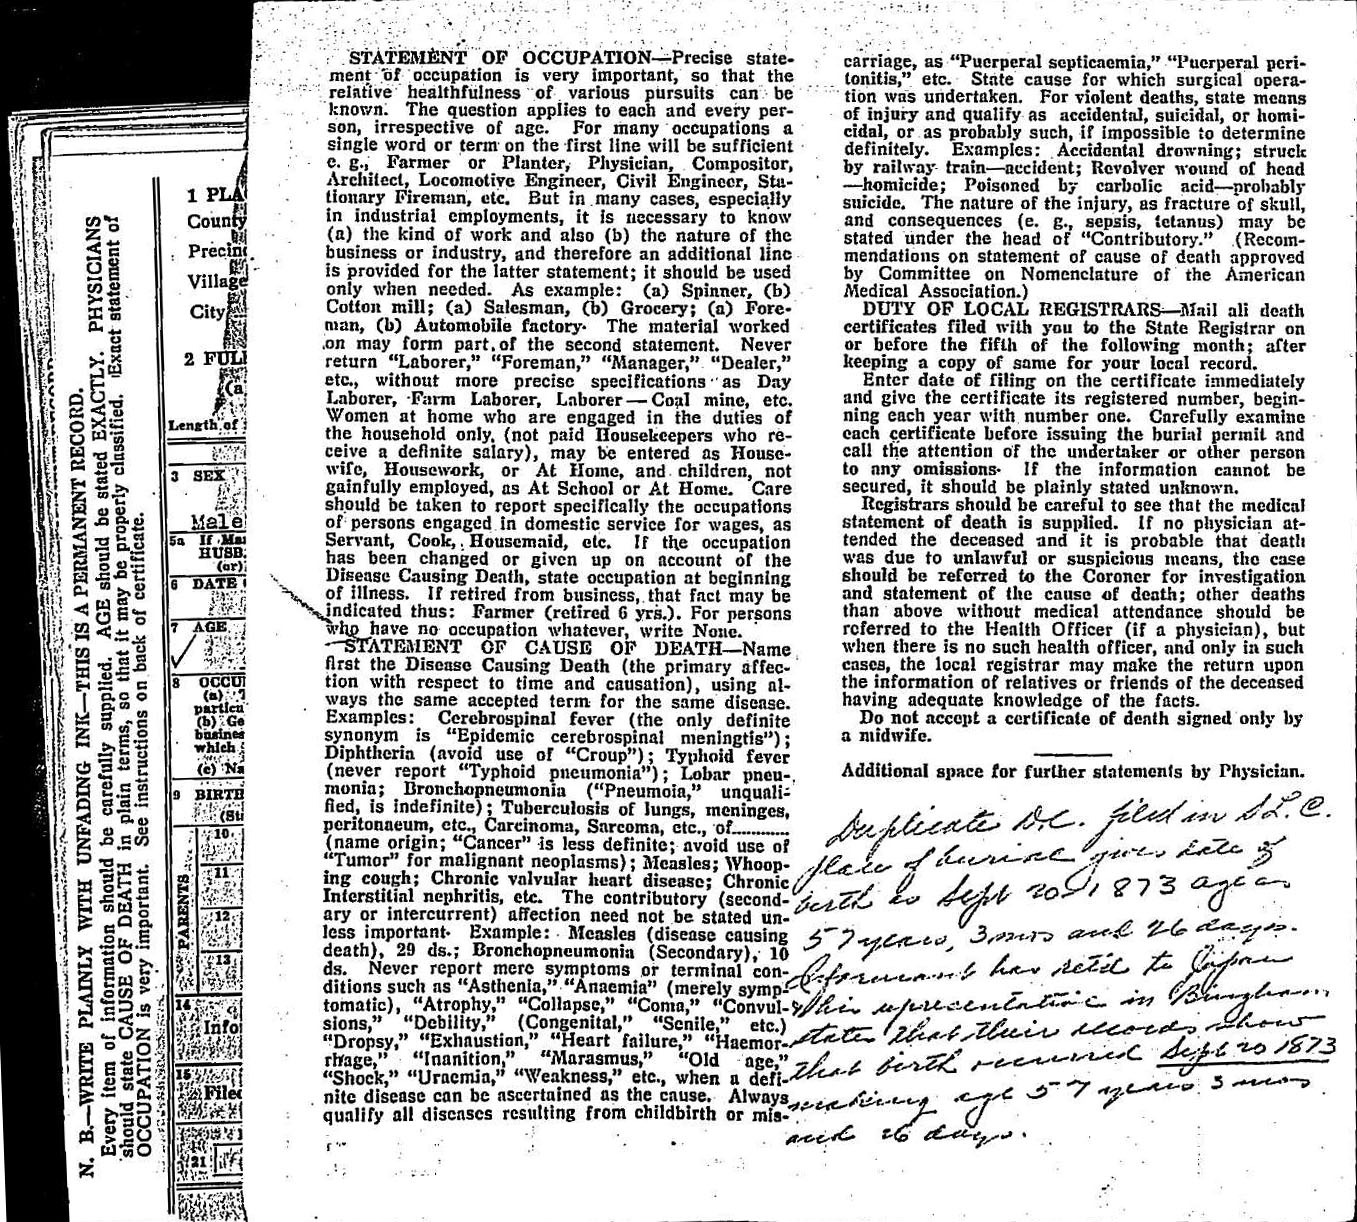 N. B.—WRITE PLAINLY WITH UNFADING INK—THIS IS A PERMANENT RECORD.
Every item of information should be carefully supplied. AGE should be stated EXACTLY. PHYSICIANS
should state CAUSE OF DEATH in plain terms, so that it may be properly classified. Exact statement of
OCCUPATION is very important. See instructions on back of certificate.
1 PLA
County
Precin
Village
City
2 FULL
(a
Length of
3 SEX
Male
5a If Mar
HUSB
(or)
6 DATE
7 AGE
8 OCCU
(a) T
particu
(b) Ge
busines
which
(c) Na
9 BIRTH
(St
PARENTS
10
11
12
13
14
Info
15
Filed
21
STATEMENT OF OCCUPATION—Precise state-
ment of occupation is very important, so that the
relative healthfulness of various pursuits can be
known. The question applies to each and every per-
son, irrespective of age. For many occupations a
single word or term on the first line will be sufficient
e. g., Farmer or Planter, Physician, Compositor,
Architect, Locomotive Engineer, Civil Engineer, Sta-
tionary Fireman, etc. But in many cases, especially
in industrial employments, it is necessary to know
(a) the kind of work and also (b) the nature of the
business or industry, and therefore an additional line
is provided for the latter statement; it should be used
only when needed. As example: (a) Spinner, (b)
Cotton mill; (a) Salesman, (b) Grocery; (a) Fore-
man, (b) Automobile factory. The material worked
on may form part of the second statement. Never
return "Laborer," "Foreman," "Manager," "Dealer,"
etc., without more precise specifications as Day
Laborer, Farm Laborer, Laborer—Coal mine, etc.
Women at home who are engaged in the duties of
the household only, (not paid Housekeepers who re-
ceive a definite salary), may be entered as House-
wife, Housework, or At Home, and children, not
gainfully employed, as At School or At Home. Care
should be taken to report specifically the occupations
of persons engaged in domestic service for wages, as
Servant, Cook, Housemaid, etc. If the occupation
has been changed or given up on account of the
Disease Causing Death, state occupation at beginning
of illness. If retired from business, that fact may be
indicated thus: Farmer (retired 6 yrs.). For persons
who have no occupation whatever, write None.
STATEMENT OF CAUSE OF DEATH—Name
first the Disease Causing Death (the primary affec-
tion with respect to time and causation), using al-
ways the same accepted term for the same disease.
Examples: Cerebrospinal fever (the only definite
synonym is "Epidemic cerebrospinal meningtis");
Diphtheria (avoid use of "Croup"); Typhoid fever
(never report "Typhoid pneumonia"); Lobar pneu-
monia; Bronchopneumonia ("Pneumoia," unquali-
fied, is indefinite); Tuberculosis of lungs, meninges,
peritonaeum, etc., Carcinoma, Sarcoma, etc., of............
(name origin; "Cancer" is less definite; avoid use of
"Tumor" for malignant neoplasms); Measles; Whoop-
ing cough; Chronic valvular heart disease; Chronic
Interstitial nephritis, etc. The contributory (second-
ary or intercurrent) affection need not be stated un-
less important. Example: Measles (disease causing
death), 29 ds.; Bronchopneumonia (Secondary), 10
ds. Never report mere symptoms or terminal con-
ditions such as "Asthenia," "Anaemia" (merely symp-
tomatic), "Atrophy," "Collapse," "Coma," "Convul-
sions," "Debility," (Congenital," "Senile," etc.)
"Dropsy," "Exhaustion," "Heart failure," "Haemor-
rhage," "Inanition," "Marasmus," "Old age,"
"Shock," "Uraemia," "Weakness," etc., when a defi-
nite disease can be ascertained as the cause. Always
qualify all diseases resulting from childbirth or mis-
carriage, as "Puerperal septicaemia," "Puerperal peri-
tonitis," etc. State cause for which surgical opera-
tion was undertaken. For violent deaths, state means
of injury and qualify as accidental, suicidal, or homi-
cidal, or as probably such, if impossible to determine
definitely. Examples: Accidental drowning; struck
by railway train—accident; Revolver wound of head
—homicide; Poisoned by carbolic acid—probably
suicide. The nature of the injury, as fracture of skull,
and consequences (e. g., sepsis, tetanus) may be
stated under the head of "Contributory." (Recom-
mendations on statement of cause of death approved
by Committee on Nomenclature of the American
Medical Association.)
DUTY OF LOCAL REGISTRARS—Mail all death
certificates filed with you to the State Registrar on
or before the fifth of the following month; after
keeping a copy of same for your local record.
Enter date of filing on the certificate immediately
and give the certificate its registered number, begin-
ning each year with number one. Carefully examine
each certificate before issuing the burial permit and
call the attention of the undertaker or other person
to any omissions. If the information cannot be
secured, it should be plainly stated unknown.
Registrars should be careful to see that the medical
statement of death is supplied. If no physician at-
tended the deceased and it is probable that death
was due to unlawful or suspicious means, the case
should be referred to the Coroner for investigation
and statement of the cause of death; other deaths
than above without medical attendance should be
referred to the Health Officer (if a physician), but
when there is no such health officer, and only in such
cases, the local registrar may make the return upon
the information of relatives or friends of the deceased
having adequate knowledge of the facts.
Do not accept a certificate of death signed only by
a midwife.
Additional space for further statements by Physician.
Duplicate D.C. filed in S.L.C.
place of burial gives date of
birth as Sept 20-1873 age as
57 years, 3 mos and 26 days.
Informant has ret'd to Japan
this representative in Bingham
states that their records show
that birth occurred Sept 20 1873
making age 57 years 3 mos
and 26 days.